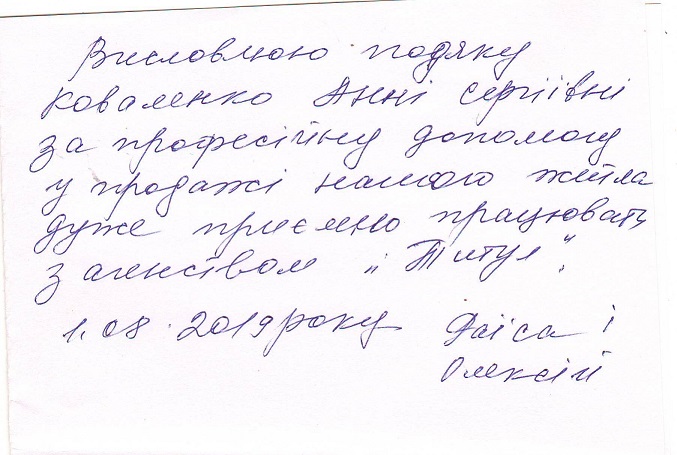 Висловлюю подяку
Коваленко Анні Сергіївні
за професійну допомогу
у продажі нашого житла
дуже приємно працювать
з агенством "Титул".
1.08.2019 року Раїса і
Олексій